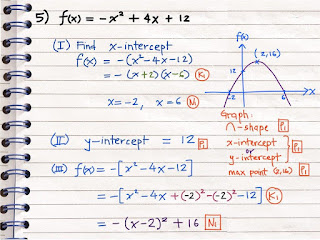 5) f(x) = -x² + 4x + 12
(I) Find x-intercept
f(x) = -(x²-4x-12)
= -(x+2)(x-6) K1
x=-2, x=6 N1
(II) y-intercept = 12 P1
(III) f(x) = -[x²-4x-12]
= -[x²-4x+(-2)²-(-2)²-12] K1
= -(x-2)² + 16 N1
f(x)
(2,16)
12
-2
6
x
Graph:
∩-shape P1
x-intercept
or
y-intercept
P1
max point (2,16) P1